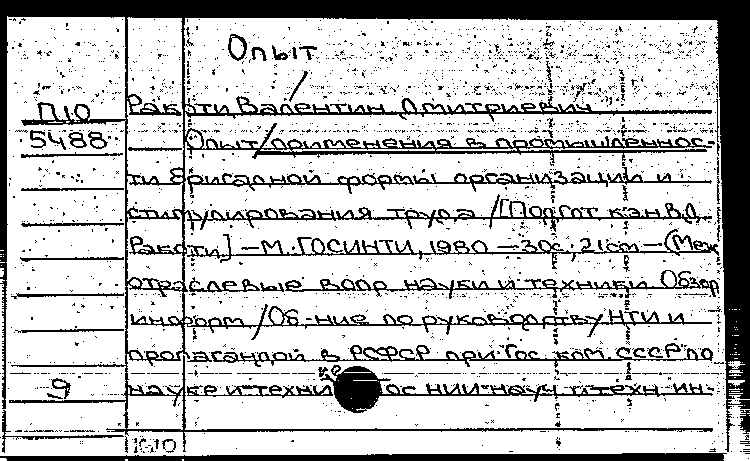 Опыт
П10
5488
Ракоти, Валентин Дмитриевич
Опыт/применения в промышленнос-
ти бригадной формы организации и
стимулирования труда /[Подгот. кэн В.Д.
Ракоти] – М.: ГОСИНТИ, 1980 – 30с.; 21см – (Меж
отраслевые вопр. науки и техники Обзор
информ /Об-ние по руководству НТИ и
пропагандой в РСФСР при Гос ком. СССР по
9
науке и техни ке ос нии науч и техн ин-